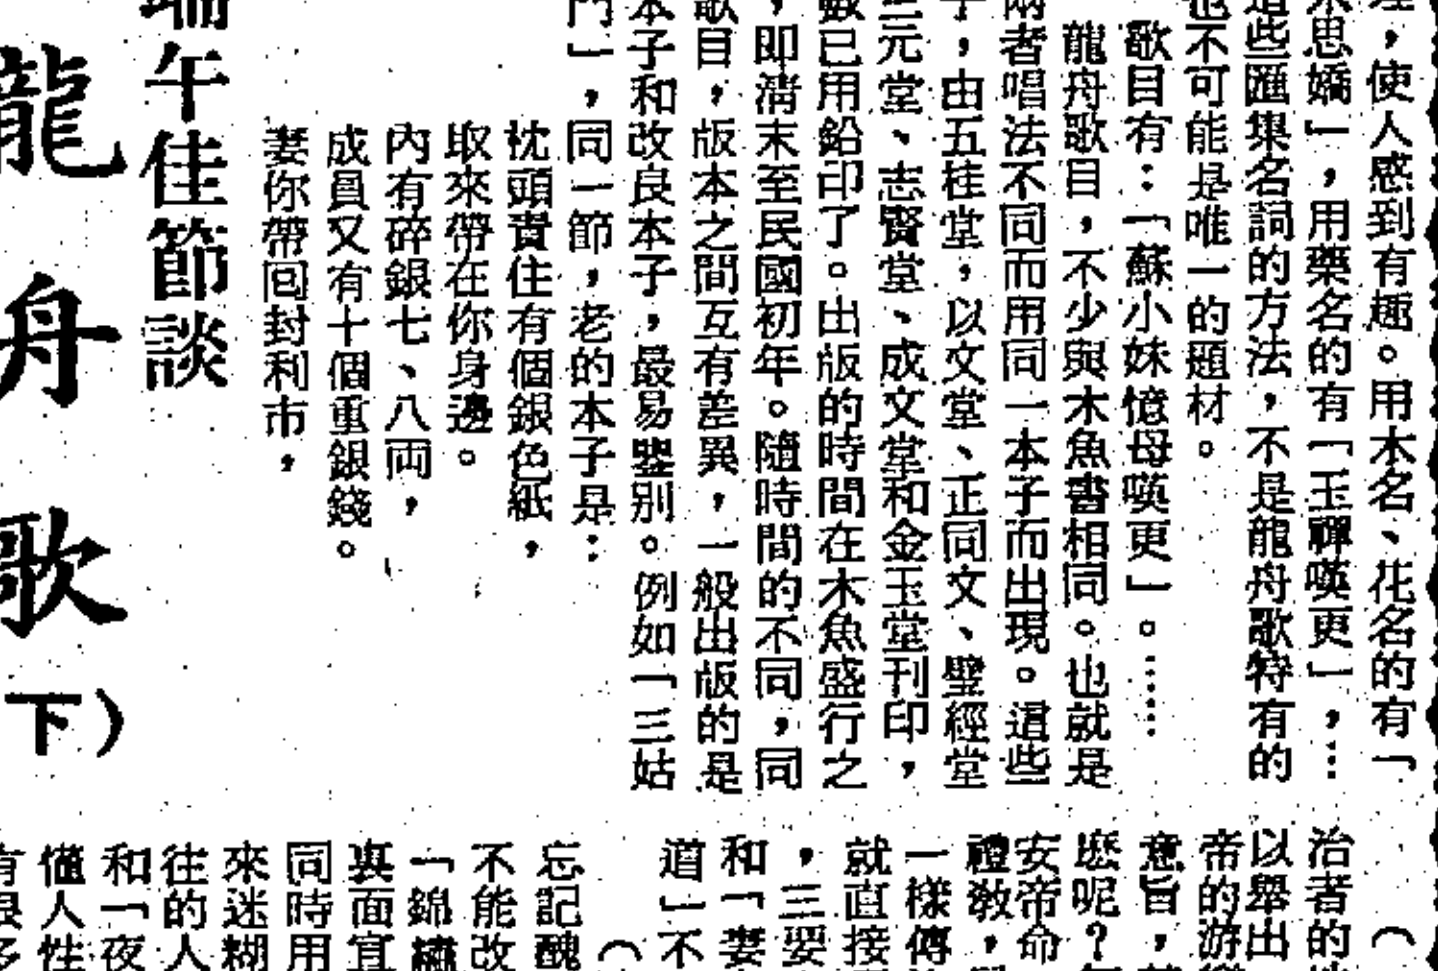 ，使人感到有趣。用木名、花名的有「
思嬌」，用藥名的有「玉嬋嘆更」，…
這些匯集名詞的方法，不是龍舟歌特有的
也不可能是唯一的題材。
歌目有：「蘇小妹憶母嘆更」。……
龍舟歌目，不少與木魚書相同。也就是
兩者唱法不同而用同一本子而出現。這些
，由五桂堂，以文堂、正同文、璧經堂
三元堂、志賢堂、成文堂和金玉堂刊印，
數已用鉛印了。出版的時間在木魚盛行之
，即清末至民國初年。隨時間的不同，同
歌目，版本之間互有差異，一般出版的是
本子和改良本子，最易鑒别。例如「三姑
門」，同一節，老的本子是：
枕頭責住有個銀色紙，
取來帶在你身邊。
內有碎銀七、八両，
成員又有十個重銀錢。
妻你帶囘封利市，
端午佳節談
龍舟歌
下）
（
治者的
以舉出
帝的游
意旨，
麽呢？
安帝命
禮教，
一樣傳
就直接
，三要
和「妻
道」不
（
忘記醜
不能改
「錦繡
裏面宜
同時用
來迷糊
往的人
和「夜
僅人性
有很多